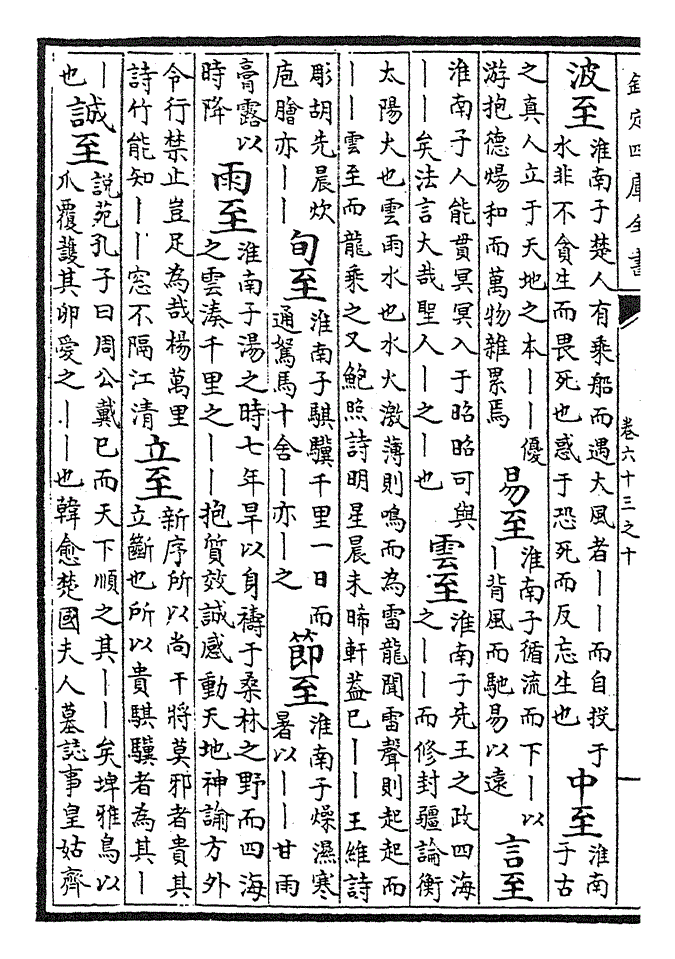 欽定四庫全書 卷六十三之十 一
波至
淮南子楚人有乘船而遇大風者丨丨而自投于
水非不貪生而畏死也惑于恐死而反忘生也
中至
淮南
于古
之真人立于天地之本丨丨優
游抱德煬和而萬物雜累焉
易至
淮南子循流而下丨以
丨背風而馳易以遠
言至
淮南子人能貫冥冥入于昭昭可與
丨丨矣法言大哉聖人丨之丨也
雲至
淮南子先王之政四海
之丨丨而修封疆論衡
太陽火也雲雨水也水火激薄則鳴而為雷龍聞雷聲則起起而
丨丨雲至而龍乘之又鮑照詩明星晨未晞軒葢已丨丨王維詩
彫胡先晨炊
庖膾亦丨丨
旬至
淮南子騏驥千里一日而
通駑馬十舍丨亦丨之
節至
淮南子燥濕寒
暑以丨丨甘雨
膏露以
時降
雨至
淮南子湯之時七年旱以身禱于桑林之野而四海
之雲湊千里之丨丨抱質效誠感動天地神諭方外
令行禁止豈足為哉楊萬里
詩竹能知丨丨窓不隔江清
立至
新序所以尚干將莫邪者貴其
立斷也所以貴騏驥者為其丨
丨
也
誠至
説苑孔子曰周公戴已而天下順之其丨丨矣埤雅鳥以
爪覆護其卵愛之丨丨也韓愈楚國夫人墓誌事皇姑齊